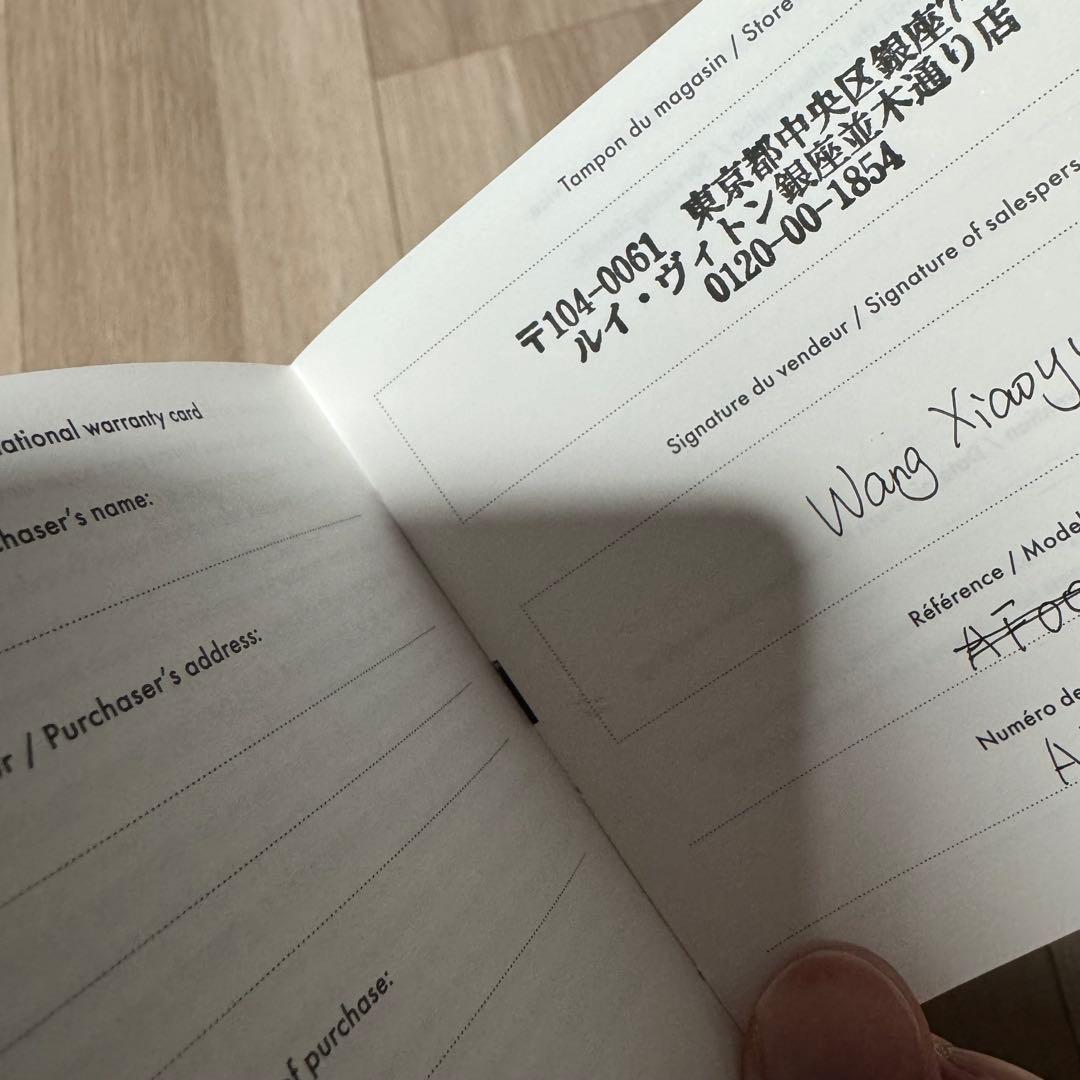 ational warranty card
chaser's name:
r / Purchaser's address:
of purchase:
Tampon du magasin / Store
〒104-0061 東京都中央区銀座7
ルイ・ヴィトン銀座並木通り店
0120-00-1854
Signature du vendeur / Signature of salespers
Wang Xiaoy
Référence / Model
AF00
Numéro de
A